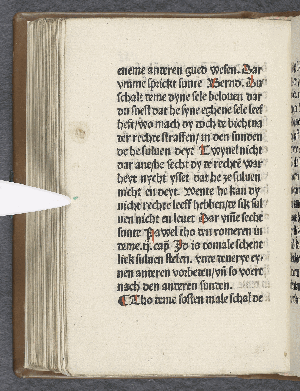 eneme anderen gued wesen. Dar
vmme sprickt sunte Bernd. Du
schalt teme dyne sele belouen dar
du suest dat he syne eghene sele leef
heft/ wo mach dy doch de bichtua
der rechte straffen/ in den sunden
de he suluen deyt
dar ane he secht dy de rechte war
heyt nycht ysset dat he ze suluen
nicht en deyt. Wente he kan dy
nicht rechte leeff hebben/ de sik sul
uen nicht en leuet Dar vme secht
sunte Pawel tho den romeren in
deme .ij. cap. Id is to male schent
lick suluen stelen. vnde deuerye ey-
nen anderen vorbeden/ vn so voert
nach den anderen sunden.
Tho deme sosten male schal de